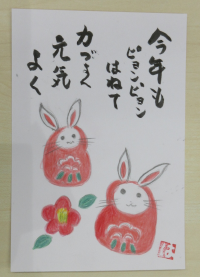 今年も
ピョンピョン
はねて
力づよく
元気
よく